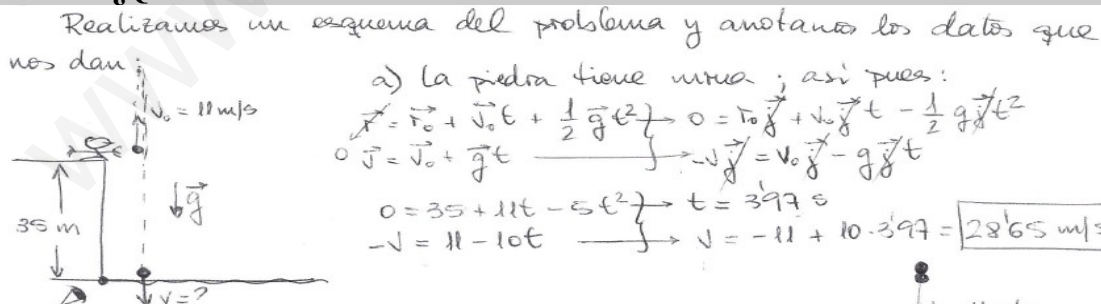 Realizamos un esquema del problema y anotamos los datos que
nos dan:
V₀ = 11 m/s
35 m
g⃗
V = ?
a) La piedra tiene mrua; así pues:
r⃗ = r⃗₀ + v⃗₀t + ½ g⃗t² → 0 = r₀ j⃗ + v₀ j⃗ t - ½ g j⃗ t²
0
v⃗ = v⃗₀ + g⃗t → -v j⃗ = v₀ j⃗ - g j⃗ t
0 = 35 + 11t - 5t² → t = 3'97 s
-v = 11 - 10t → v = -11 + 10·3'97 = 28'65 m/s